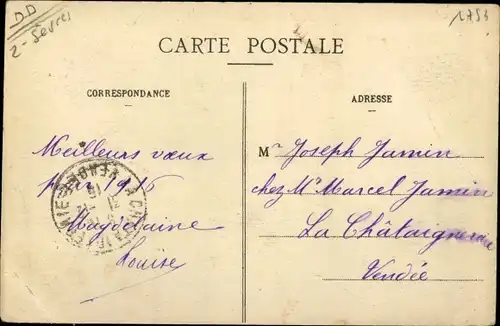 DD
2-Sèvres
1793
CARTE POSTALE
CORRESPONDANCE
ADRESSE
Meilleurs vœux
pour 1916
Magdelaine
Louise
Mr Joseph Jamin
chez Mr Marcel Jamin
La Châtaigneraie
Vendée
VENDÉE